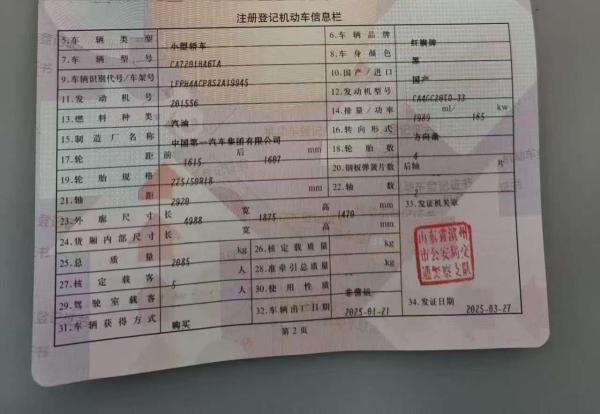 注册登记机动车信息栏
5.车辆类型 小型轿车 6.车辆品牌 红旗牌
7.车辆型号 CA7201HA6TA 8.车身颜色 黑
9.车辆识别代号/车架号 LFPH4ACP8S2A19945 10.国产/进口 国产
11.发动机号 201556 12.发动机型号 CA4GC20TD-33
13.燃料种类 汽油 14.排量/功率 1989 ml/ 165 kw
15.制造厂名称 中国第一汽车集团有限公司 16.转向形式 方向盘
17.轮距 前 1615 后 1607 mm 18.轮胎数 4
19.轮胎规格 225/50R18 20.钢板弹簧片数 后轴 片
21.轴距 2920 mm 22.轴数 2
23.外廓尺寸 长 4988 宽 1875 高 1470 mm 33.发证机关章
24.货厢内部尺寸 长 宽 高 mm
25.总质量 2085 kg 26.核定载质量 kg
27.核定载客 5 人 28.准牵引总质量 kg
29.驾驶室载客 人 30.使用性质 非营运
31.车辆获得方式 购买 32.车辆出厂日期 2025-01-21 34.发证日期 2025-03-27
山东省滨州
市公安局交
通警察支队
第2页